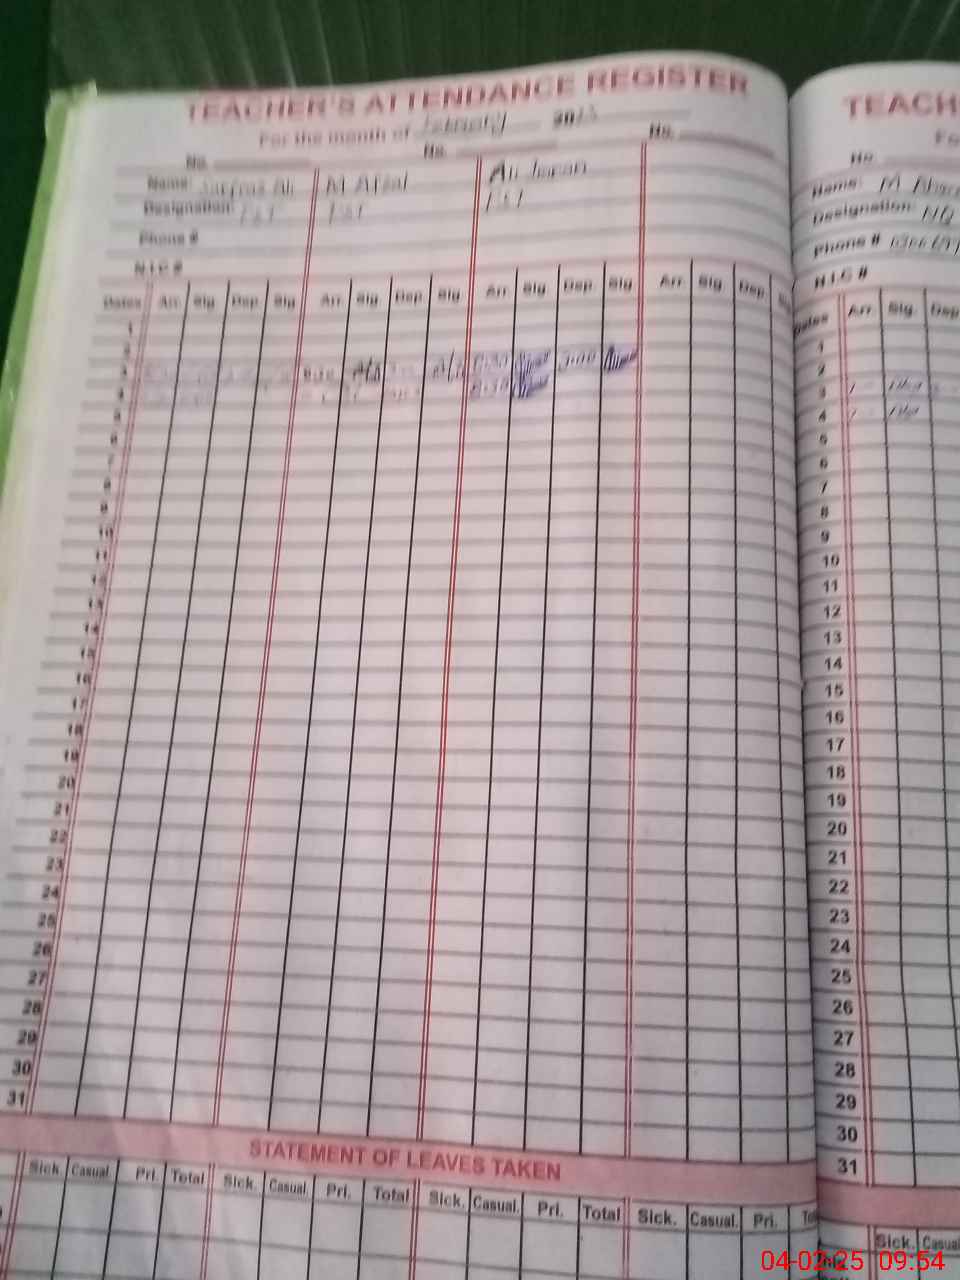 TEACHER'S ATTENDANCE REGISTER
For the month of February 20
No. No. No.
Name: Sarfraz Ali M Afzal Ali Imran
Designation: PST PST PST
Phone #
N.I.C #
Dates Arr. Sig. Dep. Sig Arr. Sig. Dep. Sig Arr. Sig Dep. Sig Arr. Sig. Dep.
1
2
3 8:30 3:00
4 8:30
5
6
7
8
9
10
11
12
13
14
15
16
17
18
19
20
21
22
23
24
25
26
27
28
29
30
31
STATEMENT OF LEAVES TAKEN
Sick. Casual. Pri. Total Sick. Casual. Pri. Total Sick. Casual. Pri. Total Sick. Casual. Pri.
TEACH
No
Name: M
Designation:
Phone #
N.I.C #
Dates Arr. Sig. Dep
1
2
3
4
5
6
7
8
9
10
11
12
13
14
15
16
17
18
19
20
21
22
23
24
25
26
27
28
29
30
31
Sick. Casual
04-02-25 09:54